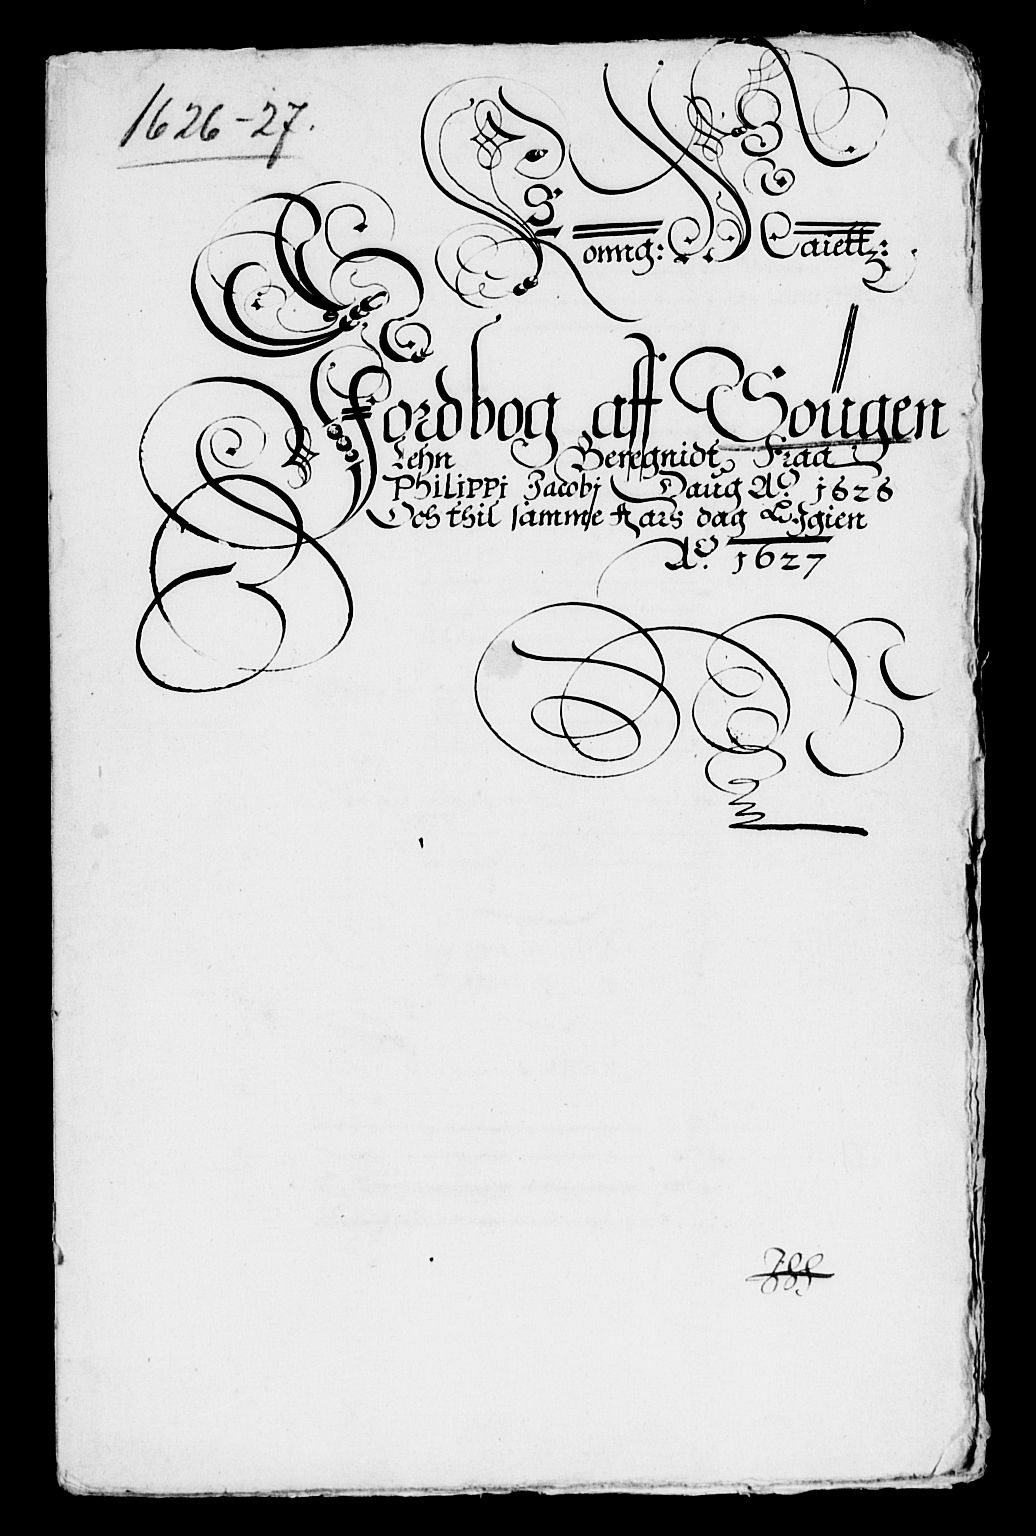 1626-27.
Konng: Maiettz:
Jordbog aff Sougen
Lehn Beregnidt Fraa
Philippi Jacobj Daug Aº. 1626
Och thil samme Aars dag Igien
Aº. 1627